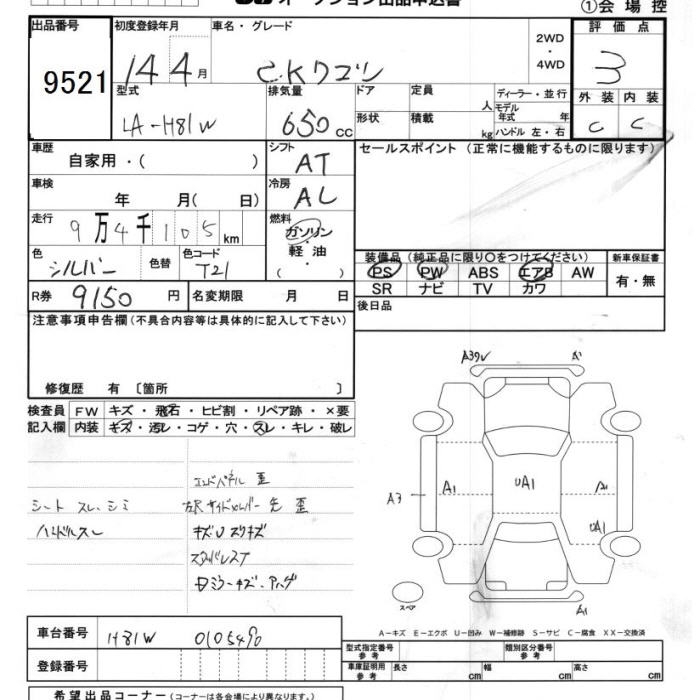 オークション出品申込書
①会場控
出品番号
9521
初度登録年月
14 4月
車名・グレード
eKワゴン
2WD
・
4WD
評価点
3
型式
LA-H81W
排気量
650cc
ドア
形状
定員
人
積載
kg
ディーラー・並行
モデル
年式 年
ハンドル 左・右
外装 内装
C C
車歴
自家用・( )
シフト
AT
セールスポイント(正常に機能するものに限ります)
車検
年 月( 日)
冷房
AL
走行
9万4千105km
燃料
ガソリン
・
軽・油
( )
色
シルバー
色替
色コード
T21
装備品(純正品に限り○をつけてください)
PS PW ABS エアB AW
SR ナビ TV カワ
新車保証書
有・無
R券 9150円
名変期限 月 日
後日品
注意事項申告欄(不具合内容等は具体的に記入して下さい)
修復歴 有〔箇所 〕
検査員
記入欄
FW キズ・飛石・ヒビ割・リペア跡・×要
内装 キズ・汚レ・コゲ・穴・スレ・キレ・破レ
エンドパネル歪
シート スレ、シミ
ハンドルスレ
左Rサイドメンバー先 歪
キズUスリキズ
A1
A3
A1
UA1
A1
UA1
A1
スペア
A-キズ E-エクボ U-凹み W-補修跡 S-サビ C-腐食 XX-交換済
車台番号
H81W 0105490
登録番号
型式指定番号
参考
類別区分番号
参考
車庫証明用
参考
長さ cm
幅 cm
高さ cm
希望出品コーナー(コーナーは各会場により異なります。)